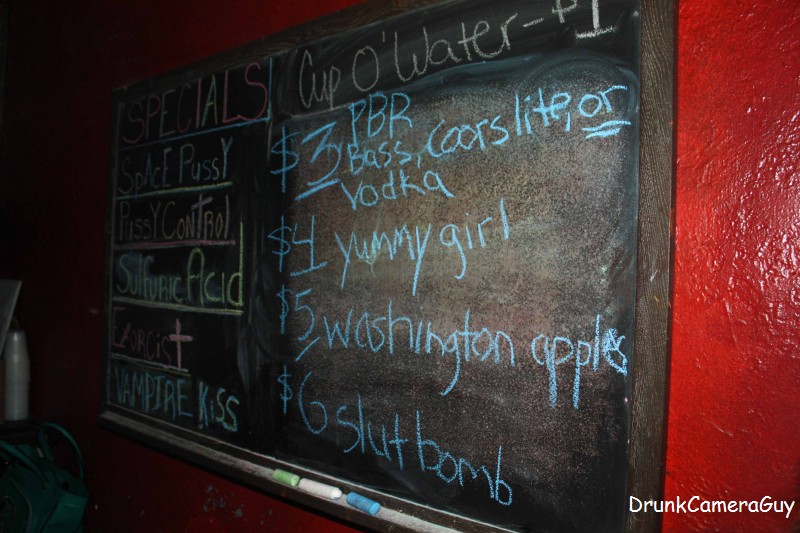 SPECIALS
SPACE PUSSY
PUSSY CONTROL
Sulfuric Acid
Exorcist
VAMPIRE KiSS
Cup O' Water - $1
$3 PBR
Bass, Coors lite, or
vodka
$4 yummy girl
$5 washington apples
$6 slut bomb
DrunkCameraGuy